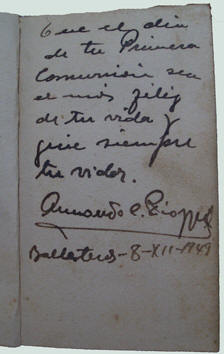 Que el dia
de tu Primera
Comunión sea
el más feliz
de tu vida y
guie siempre
tu vida.
Armando C.
Ballesteros - 8 - XII - 1949